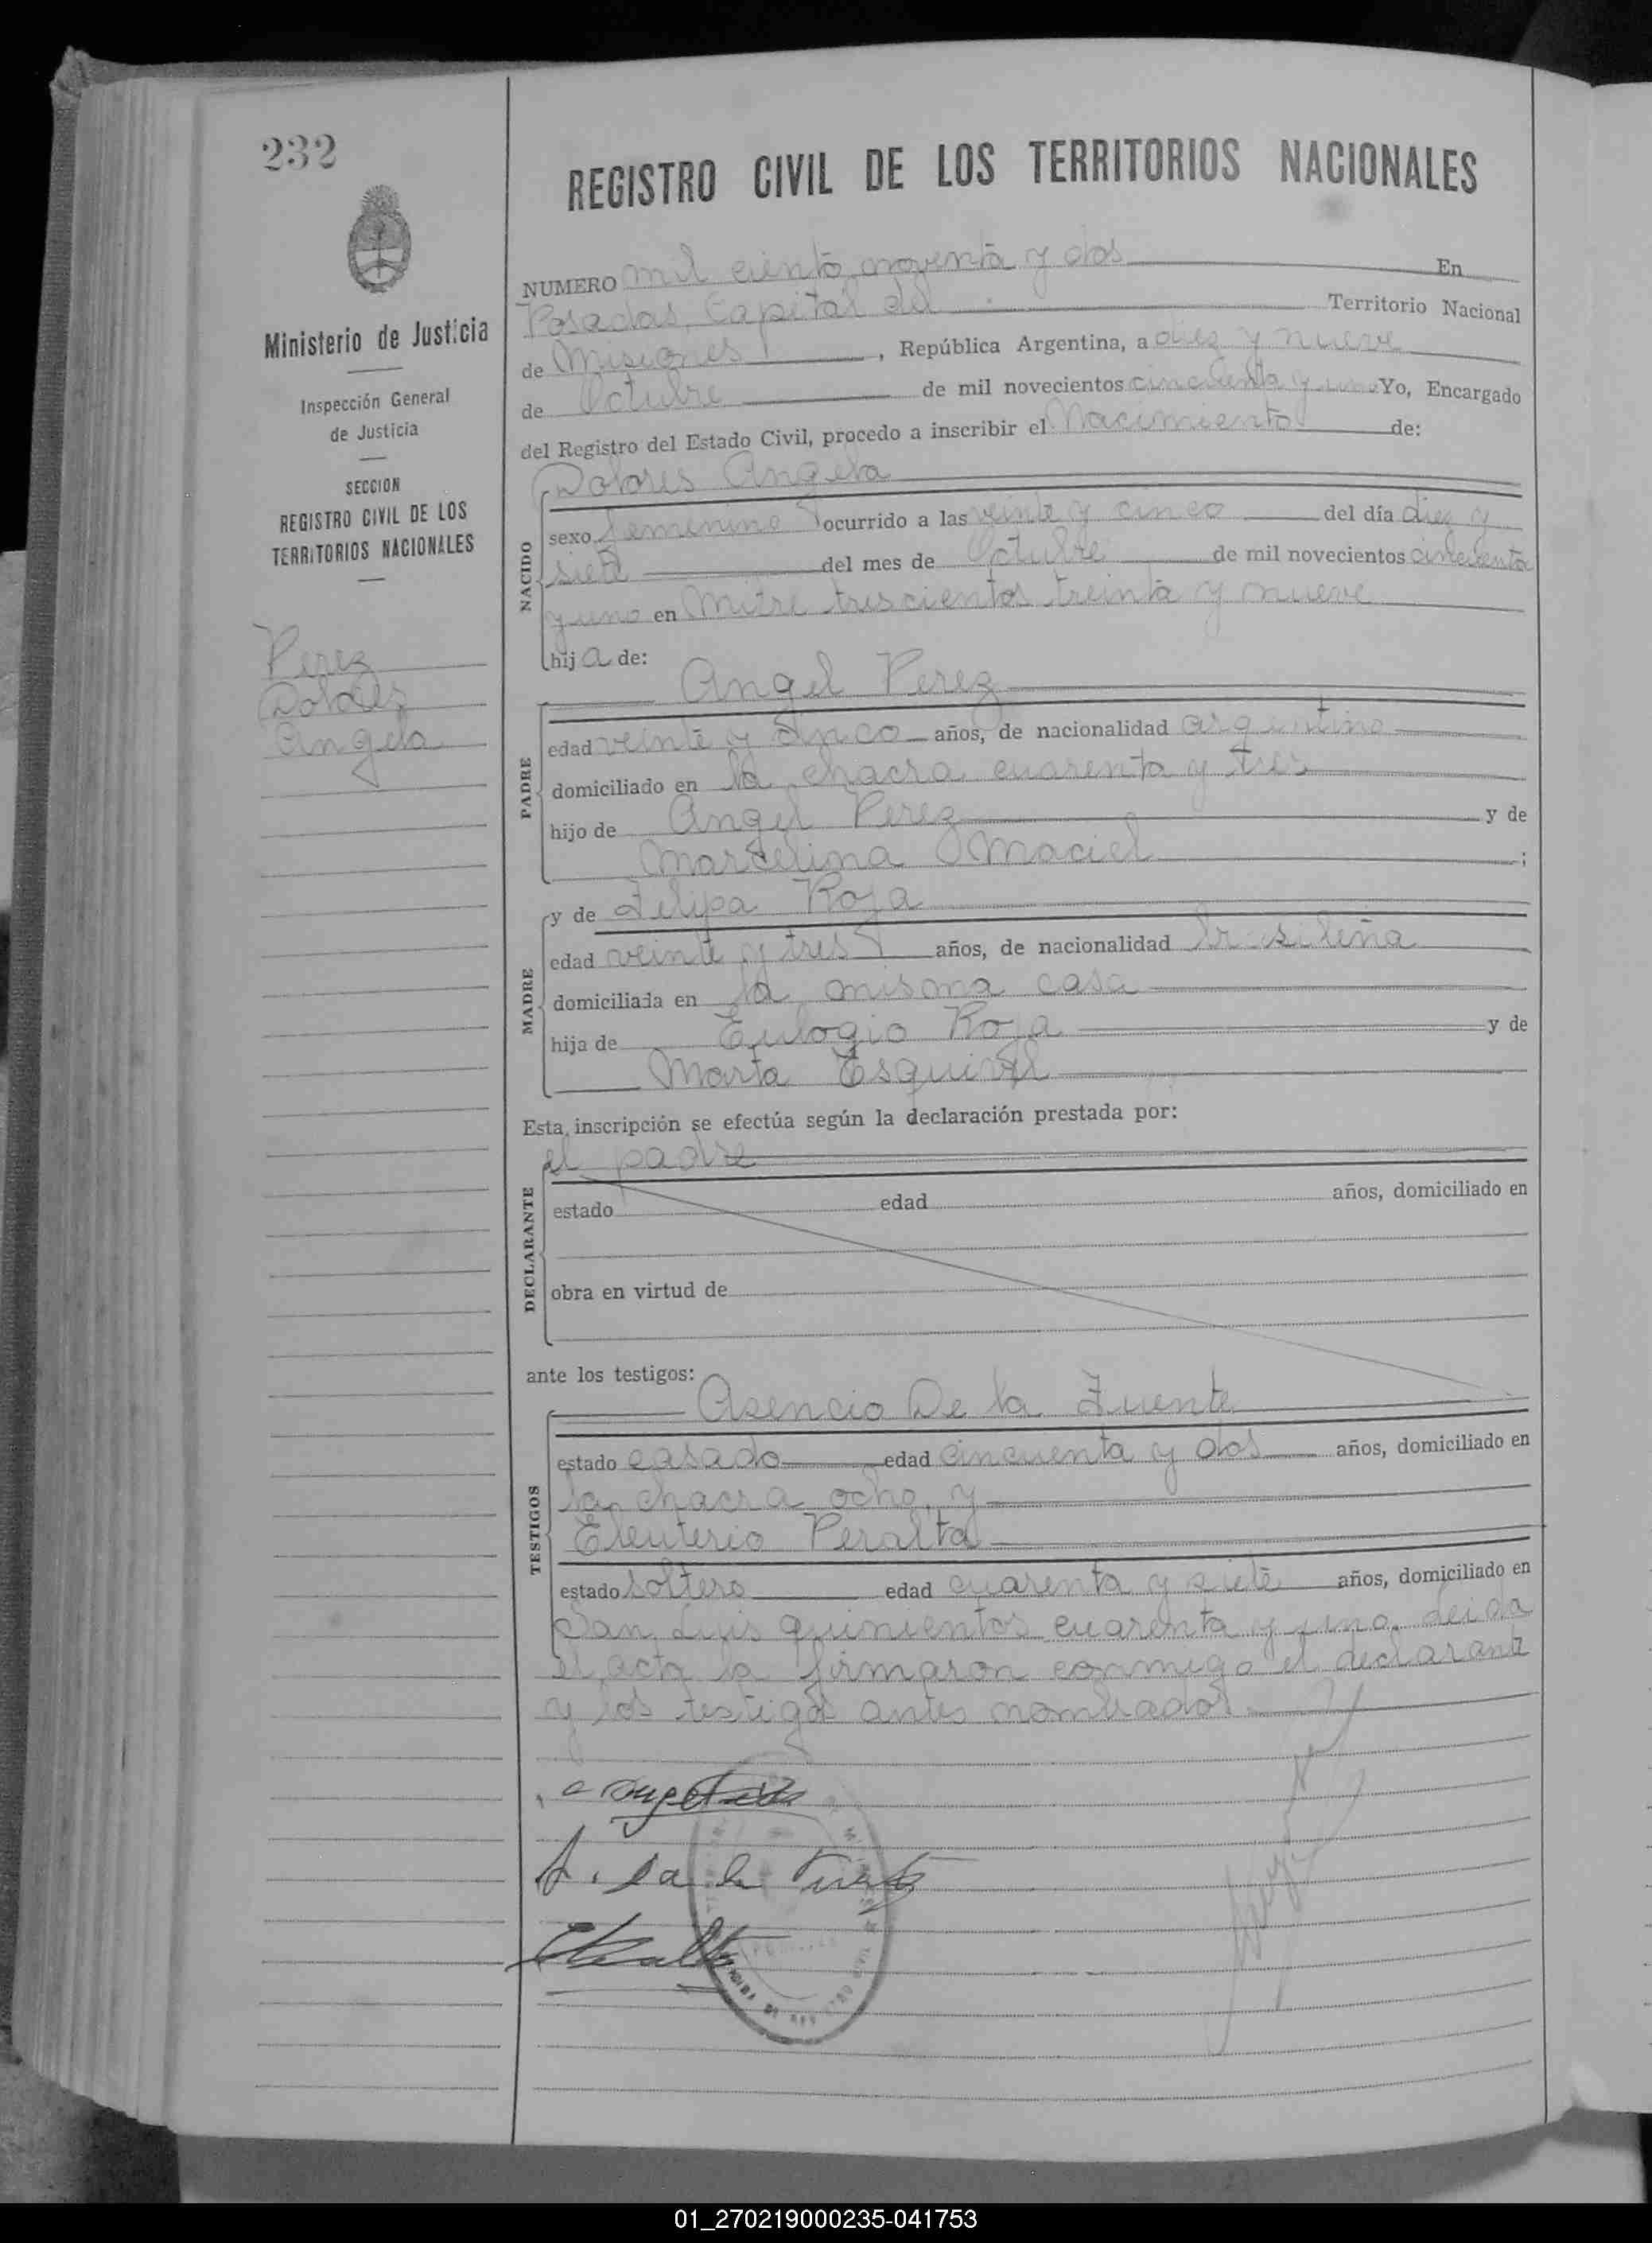 232
REGISTRO CIVIL DE LOS TERRITORIOS NACIONALES
Ministerio de Justicia
Inspección General
de Justicia
SECCION
REGISTRO CIVIL DE LOS
TERRITORIOS NACIONALES
Perez
Dolores
Angela
NUMERO mil ciento noventa y dos En
Posadas, Capital del Territorio Nacional
de Misiones, República Argentina, a diez y nueve
de Octubre de mil novecientos cincuenta y uno Yo, Encargado
del Registro del Estado Civil, procedo a inscribir el Nacimiento de:
NACIDO
Dolores Angela
sexo femenino ocurrido a las veinte y cinco del día diez y
siete del mes de Octubre de mil novecientos cincuenta
y uno en Mitre trescientos treinta y nueve
hija de:
Angel Perez
PADRE
edad veinte y cinco años, de nacionalidad argentino
domiciliado en la chacra cuarenta y tres
hijo de Angel Perez y de
Marcelina Maciel;
MADRE
y de Felipa Roja
edad veinte y tres años, de nacionalidad brasileña
domiciliada en la misma casa
hija de Eulogio Roja y de
Marta Esquivel
Esta inscripción se efectúa según la declaración prestada por:
el padre
DECLARANTE
estado edad años, domiciliado en
obra en virtud de
ante los testigos:
Asencio De la Fuente
TESTIGOS
estado casado edad cincuenta y dos años, domiciliado en
la chacra ocho, y
Eleuterio Peralta
estado soltero edad cuarenta y siete años, domiciliado en
San Luis quinientos cuarenta y uno. Leida
el acta la firmaron conmigo el declarante
y los testigos antes nombrados.
A. de la Fuente
01_270219000235-041753